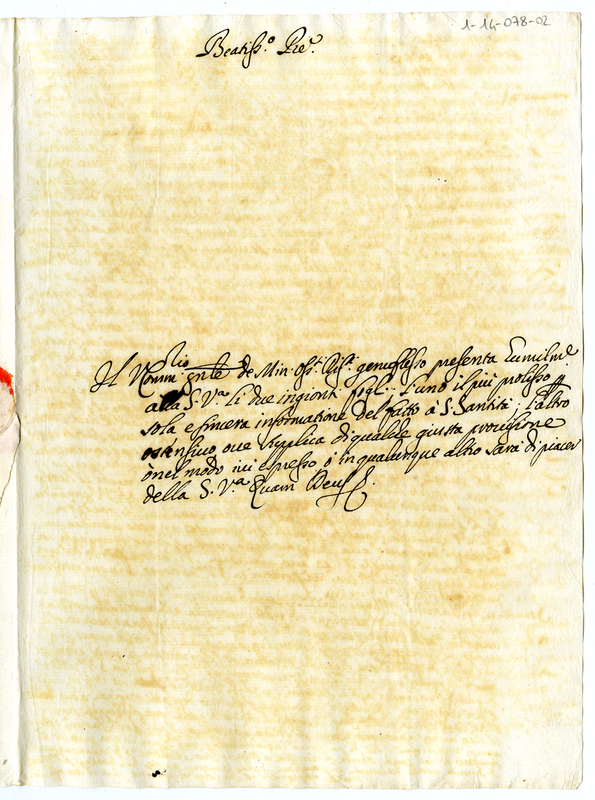 1-14-078-02
Beatiss.o Pre.
Il Comm.rio gnle de Min: Oss.ti genuflesso presenta humilme
alla S. V.ra li due ingionti fogli: l'uno il più prolisso
sola e sincera informatione del fatto à S. Santità; l'altro
ostensivo ove supplica di qualche giusta provisione
ò nel modo ivi espresso ò in qualunque altro sarà di piacer
della S. V.ra Quam Deus